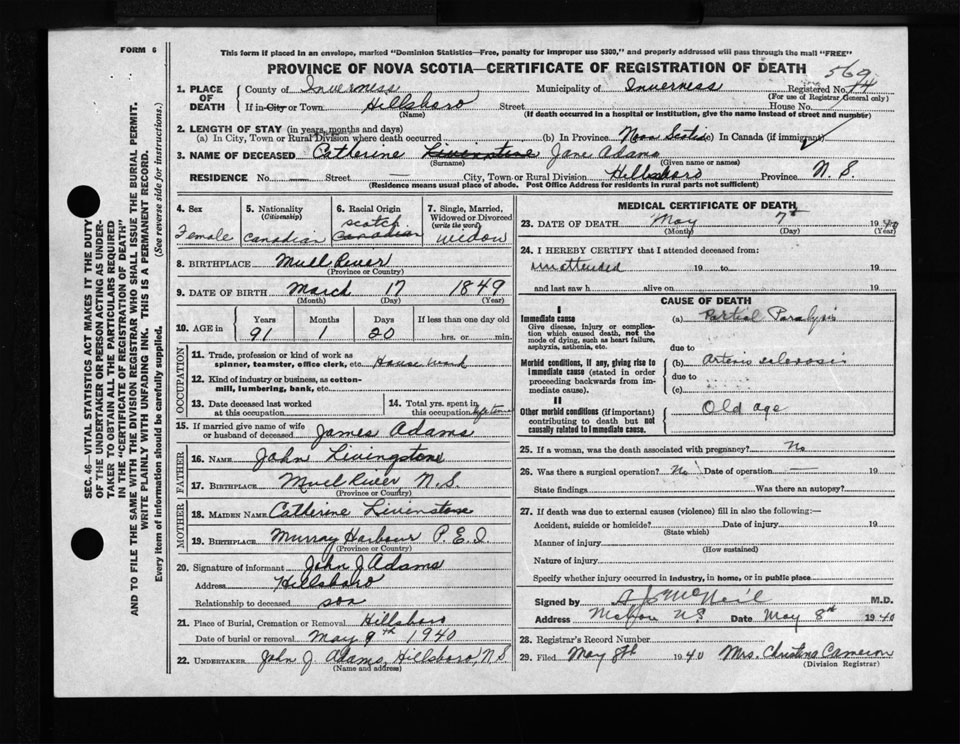 FORM 6
This form if placed in an envelope, marked "Dominion Statistics—Free, penalty for improper use $300," and properly addressed will pass through the mail "FREE"
PROVINCE OF NOVA SCOTIA—CERTIFICATE OF REGISTRATION OF DEATH
569
1. PLACE OF DEATH
County of Inverness Municipality of Inverness Registered No. 74
(For use of Registrar General only)
If in City or Town Hillsboro Street House No.
(Name) (If death occurred in a hospital or institution, give the name instead of street and number)
2. LENGTH OF STAY (in years, months and days)
(a) In City, Town or Rural Division where death occurred (b) In Province Nova Scotia (c) In Canada (if immigrant)
3. NAME OF DECEASED Catherine Livingstone Jane Adams
(Surname) (Given name or names)
RESIDENCE No. — Street — City, Town or Rural Division Hillsboro Province N. S.
(Residence means usual place of abode. Post Office Address for residents in rural parts not sufficient)
4. Sex
Female
5. Nationality
(Citizenship)
Canadian
6. Racial Origin
Scotch
Canadian
7. Single, Married, Widowed or Divorced
(write the word)
Widow
8. BIRTHPLACE Mull River
(Province or Country)
9. DATE OF BIRTH March 17 1849
(Month) (Day) (Year)
10. AGE in
Years Months Days If less than one day old
91 1 20 hrs. or min.
OCCUPATION
11. Trade, profession or kind of work as
spinner, teamster, office clerk, etc. House Work
12. Kind of industry or business, as cotton-
mill, lumbering, bank, etc.
13. Date deceased last worked
at this occupation
14. Total yrs. spent in
this occupation life time
15. If married give name of wife
or husband of deceased James Adams
FATHER
16. NAME John Livingstone
17. BIRTHPLACE Mull River N. S.
(Province or Country)
MOTHER
18. MAIDEN NAME Catherine Livinstone
19. BIRTHPLACE Murray Harbour P. E. I.
(Province or Country)
20. Signature of informant John J Adams
Address Hillsboro
Relationship to deceased son
21. Place of Burial, Cremation or Removal Hillsboro
Date of burial or removal May 9th 1940
22. UNDERTAKER John J. Adams, Hillsboro, N S
(Name and address)
MEDICAL CERTIFICATE OF DEATH
23. DATE OF DEATH May 7th 1940
(Month) (Day) (Year)
24. I HEREBY CERTIFY that I attended deceased from:
unattended 19 to 19
and last saw h alive on 19
CAUSE OF DEATH
I
Immediate cause
Give disease, injury or complica-
tion which caused death, not the
mode of dying, such as heart failure,
asphyxia, asthenia, etc.
(a) Partial Paralysis
due to
Morbid conditions, if any, giving rise to
immediate cause (stated in order
proceeding backwards from im-
mediate cause).
(b) Arterio sclerosis
due to
(c)
II
Other morbid conditions (if important)
contributing to death but not
causally related to immediate cause.
Old age
25. If a woman, was the death associated with pregnancy? No
26. Was there a surgical operation? No Date of operation — 19
State findings Was there an autopsy?
27. If death was due to external causes (violence) fill in also the following:—
Accident, suicide or homicide? Date of injury 19
(State which)
Manner of injury
(How sustained)
Nature of injury
Specify whether injury occurred in industry, in home, or in public place
Signed by McNeil M.D.
Address Mabou N S Date May 8th 1940
28. Registrar's Record Number
29. Filed May 8th 1940 Mrs. Christina Cameron
(Division Registrar)
SEC. 46—VITAL STATISTICS ACT MAKES IT THE DUTY
OF THE UNDERTAKER OR PERSON ACTING AS UNDER-
TAKER TO OBTAIN ALL THE PARTICULARS REQUIRED
IN THE "CERTIFICATE OF REGISTRATION OF DEATH"
AND TO FILE THE SAME WITH THE DIVISION REGISTRAR WHO SHALL ISSUE THE BURIAL PERMIT.
WRITE PLAINLY WITH UNFADING INK. THIS IS A PERMANENT RECORD.
Every item of information should be carefully supplied. (See reverse side for instructions.)